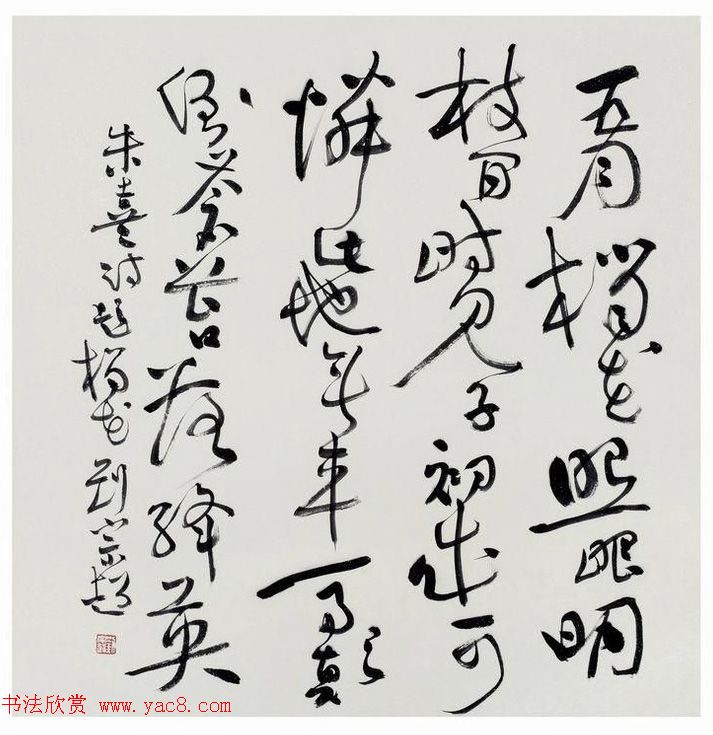 五月榴花照眼明
枝间时见子初成可
憐此地无車马颠
倒苍苔落绛英
朱熹诗题榴花 刘宗超
书法欣赏 www.yac8.com